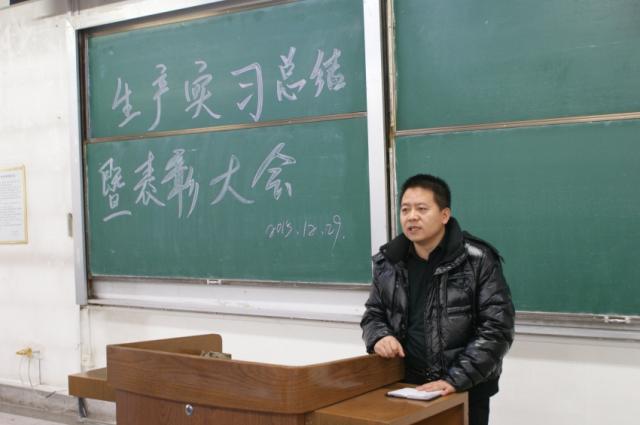 生产实习总结
暨表彰大会
2015.12.29.